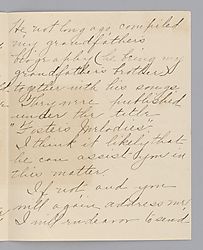 He not long ago, compiled
my grandfathers
biography (he being my
grandfathers brother)
together with his songs.
They were published
under the title
"Fosters Melodies".
I think it likely that
he can assist you in
this matter.
If not and you
will again address me
I will endeavor to send